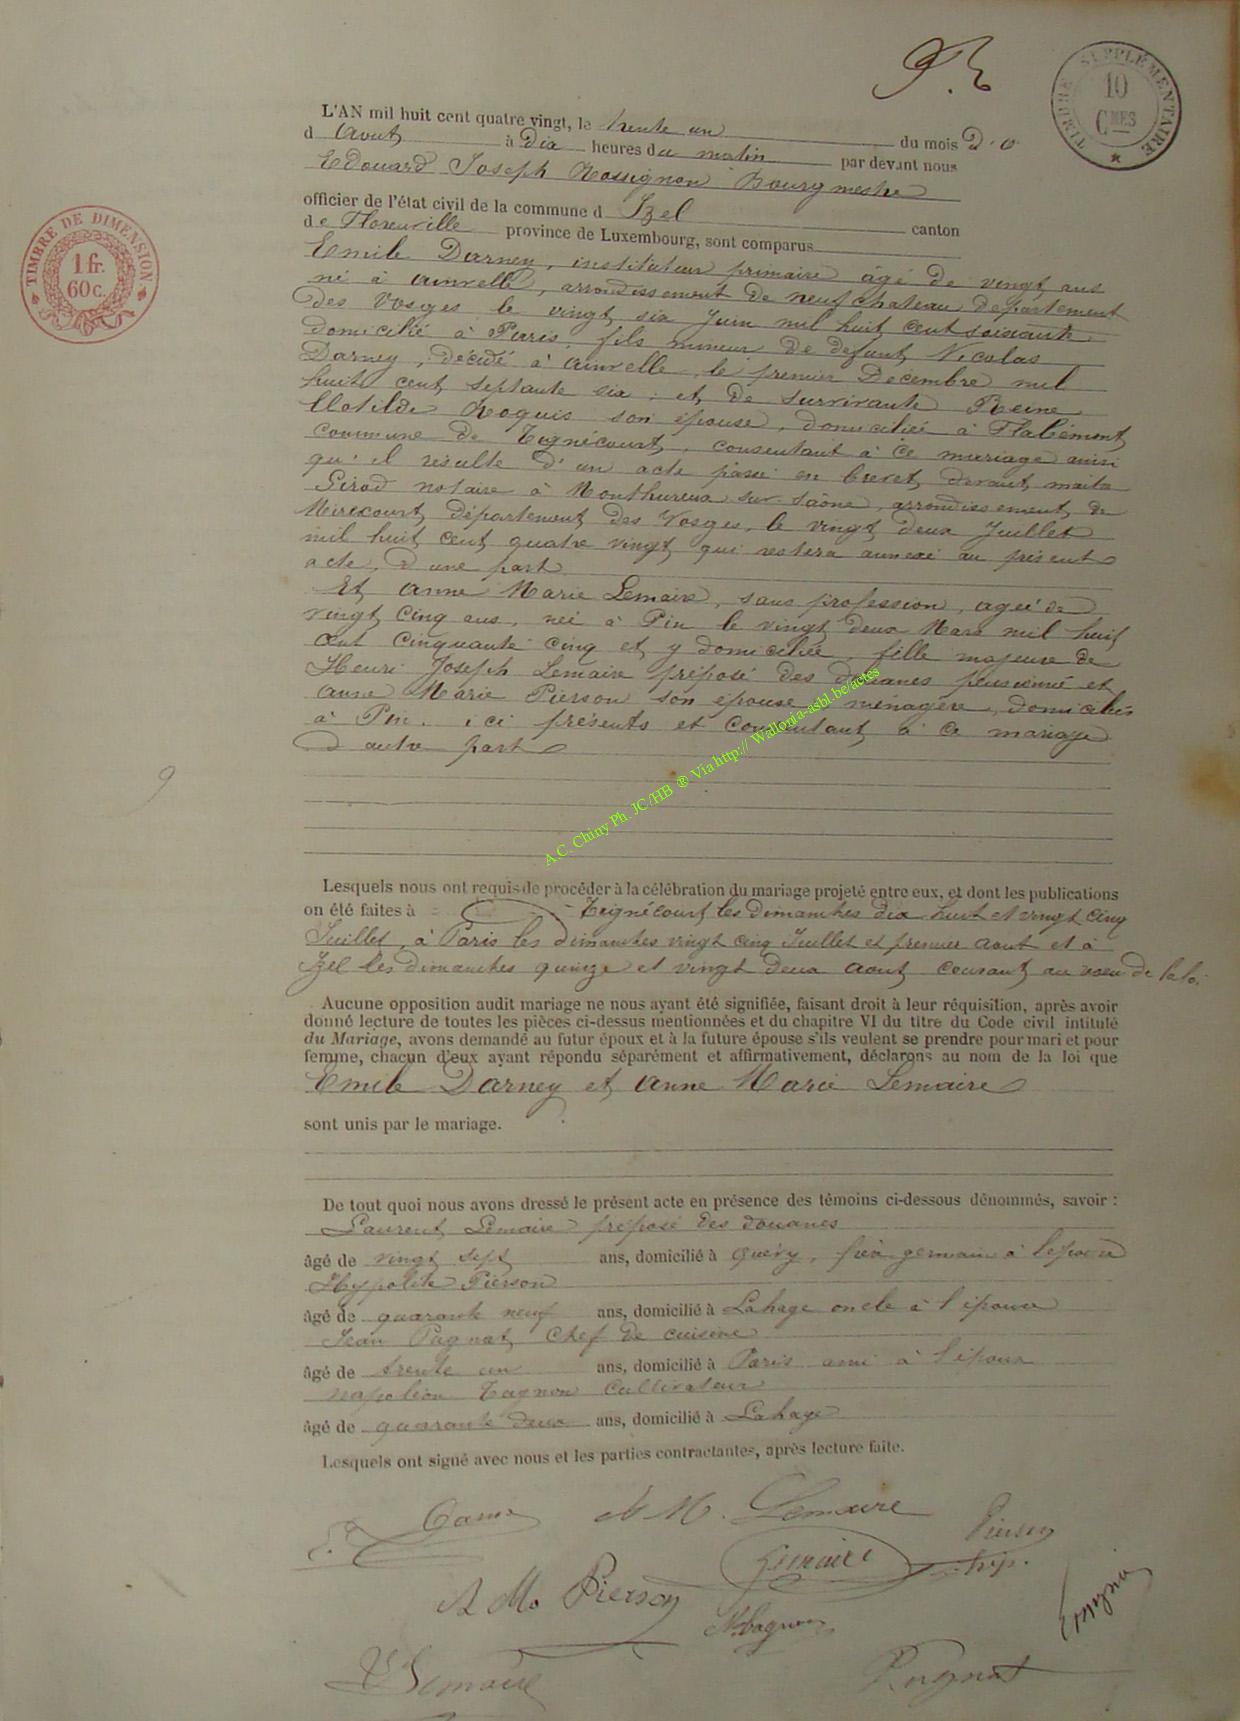 TIMBRE SUPPLÉMENTAIRE
10
CMES
L'AN mil huit cent quatre vingt, le trente un du mois D'
d Aout à Dix heures du matin par devant nous
Edouard Joseph Rossignon Bourgmestre
officier de l'état civil de la commune d Izel canton
de Florenville province de Luxembourg, sont comparus
TIMBRE DE DIMENSION
1 fr.
60c.
Emile Darney, instituteur primaire âgé de vingt ans
né à Ainvelle, arrondissement de neufchateau département
des Vosges le vingt six Juin mil huit cent soixante
domicilié à Paris, fils mineur de défunt Nicolas
Darney, décédé à Ainvelle, le premier Décembre mil
huit cent septante six, et de survivante Reine
Clotilde Roquis son épouse, domiciliée à Flabémont
commune de Tignécourt, consentant à ce mariage ainsi
qu'il résulte d'un acte passé en brevet devant maitre
Girod notaire à Monthureux sur Saône, arrondissement de
Mirecourt, département des Vosges, le vingt deux Juillet
mil huit cent quatre vingt qui restera annexé au présent
acte, d'une part
Et Anne Marie Lemaire, sans profession, agée de
vingt cinq ans, née à Pin le vingt deux Mars mil huit
cent cinquante cinq et y domiciliée, fille majeure de
Henri Joseph Lemaire préposé des douanes pensionné et
Anne Marie Pierson son épouse ménagère, domiciliés
à Pin, ici présents et consentant à ce mariage
d'autre part
9
A.C. Chiny Ph. JC/HB ® Via http:// Wallonia-asbl.be/actes
Lesquels nous ont requis de procéder à la célébration du mariage projeté entre eux, et dont les publications
on été faites à Tignécourt les dimanches dix huit et vingt cinq
Juillet, à Paris les dimanches vingt cinq Juillet et premier Aout et à
Izel les dimanches quinze et vingt deux Aout courant au voeu de la loi.
Aucune opposition audit mariage ne nous ayant été signifiée, faisant droit à leur réquisition, après avoir
donné lecture de toutes les pièces ci-dessus mentionnées et du chapitre VI du titre du Code civil intitulé
du Mariage, avons demandé au futur époux et à la future épouse s'ils veulent se prendre pour mari et pour
femme, chacun d'eux ayant répondu séparément et affirmativement, déclarons au nom de la loi que
Emile Darney et Anne Marie Lemaire
sont unis par le mariage.
De tout quoi nous avons dressé le présent acte en présence des témoins ci-dessous dénommés, savoir :
Laurent Lemaire préposé des douanes
âgé de vingt sept ans, domicilié à Quévy, frère germain à l'épouse
Hypolite Pierson
âgé de quarante neuf ans, domicilié à Lahage oncle à l'épouse
Jean Pugnat, Chef de cuisine
âgé de trente un ans, domicilié à Paris ami à l'époux
Napoléon Tagnon Cultivateur
âgé de quarante deux ans, domicilié à Lahage
Lesquels ont signé avec nous et les parties contractantes, après lecture faite.
E. Darney A M. Lemaire Pierson
Lemaire hip.
A M. Pierson
N. Tagnon
L Lemaire Pugnat